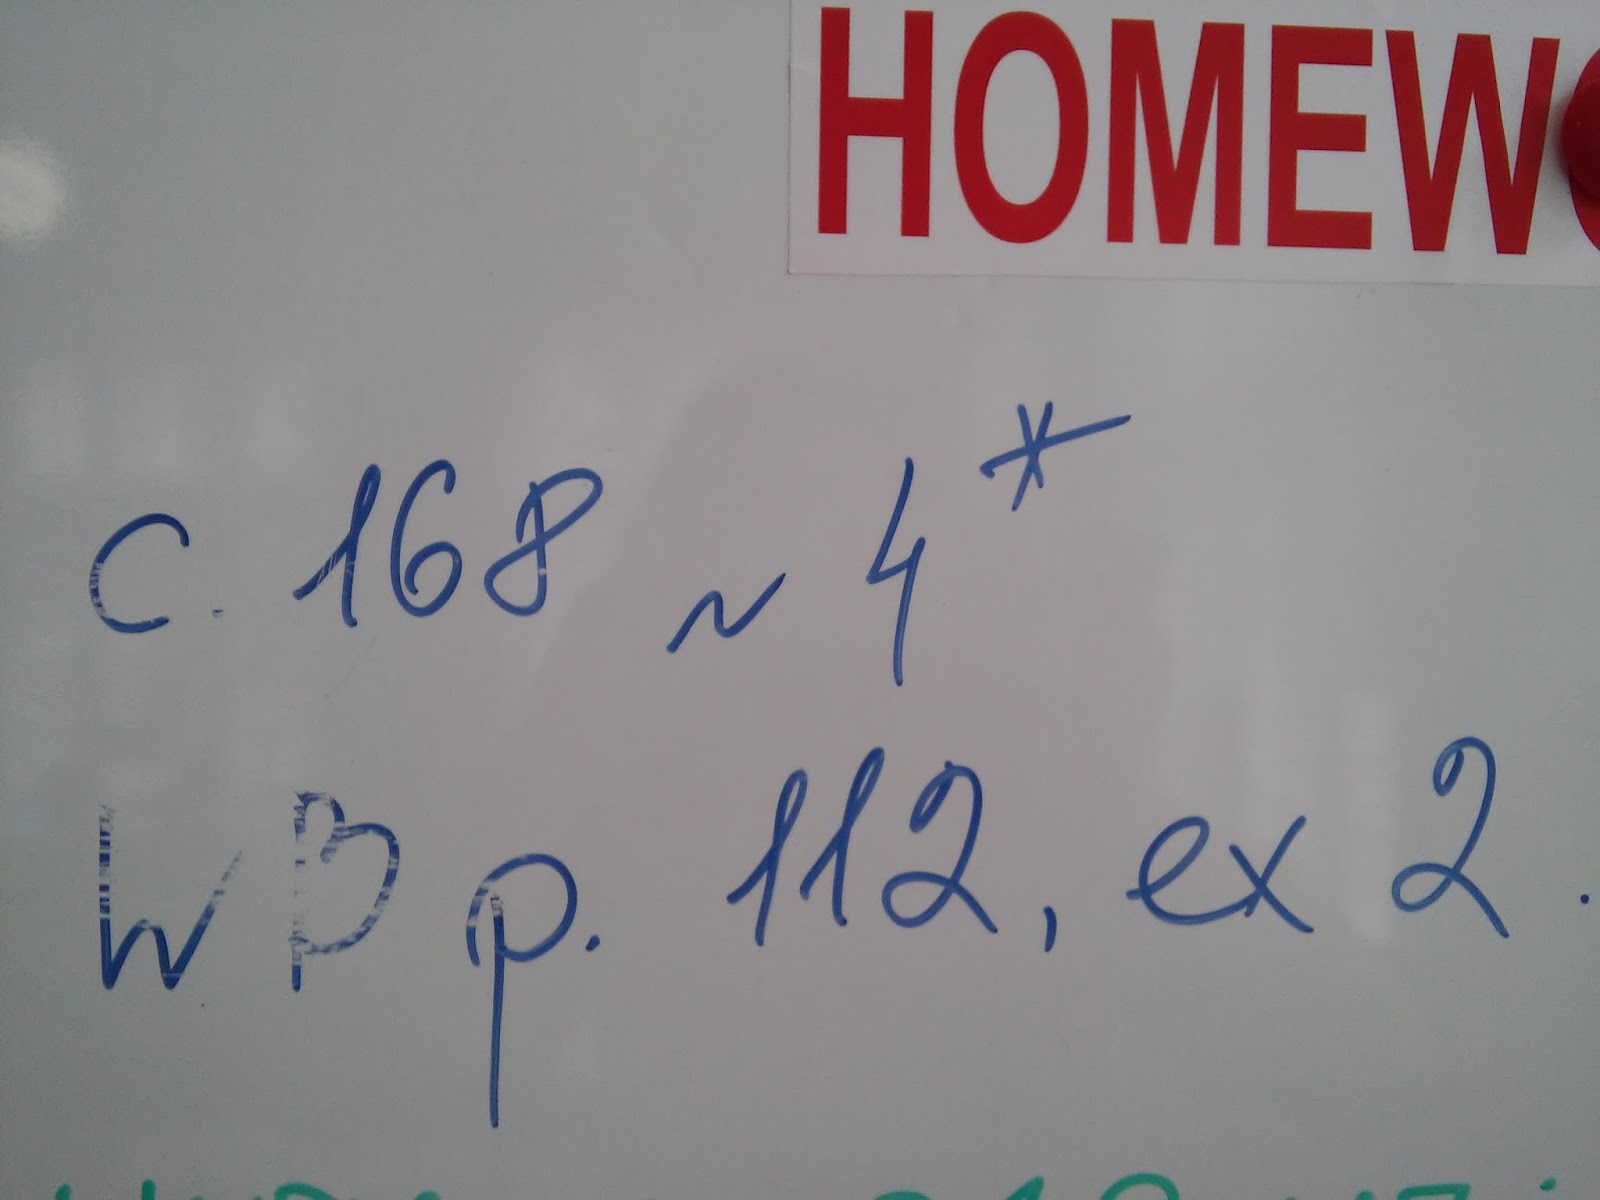 HOMEW
с. 168 ~ 4*
WB p. 112, ex 2.